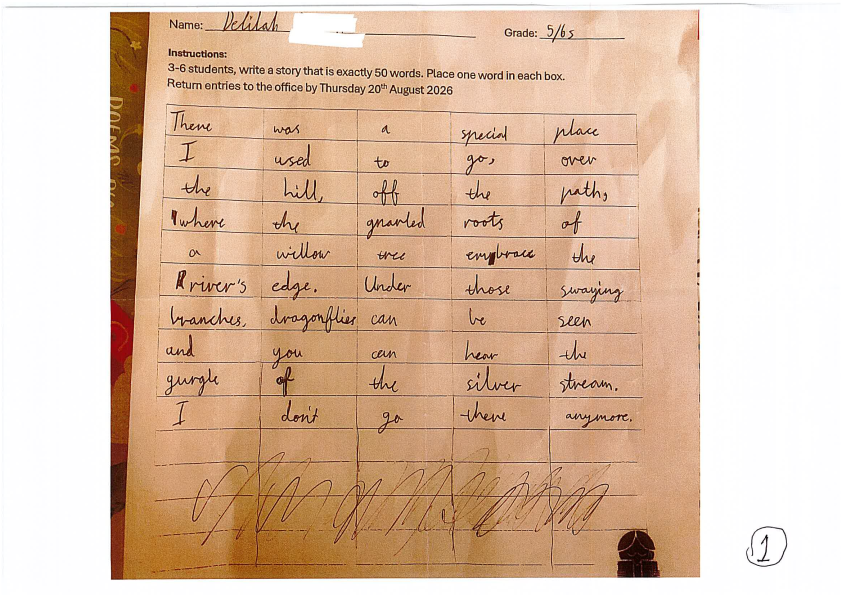 Name: Delilah
Grade: 5/6s
Instructions:
3-6 students, write a story that is exactly 50 words. Place one word in each box.
Return entries to the office by Thursday 20th August 2026
There was a special place
I used to go, over
the hill, off the path,
where the gnarled roots of
a willow tree embrace the
river's edge. Under those swaying
branches, dragonflies can be seen
and you can hear the
gurgle of the silver stream.
I don't go there anymore.
POEMS
1